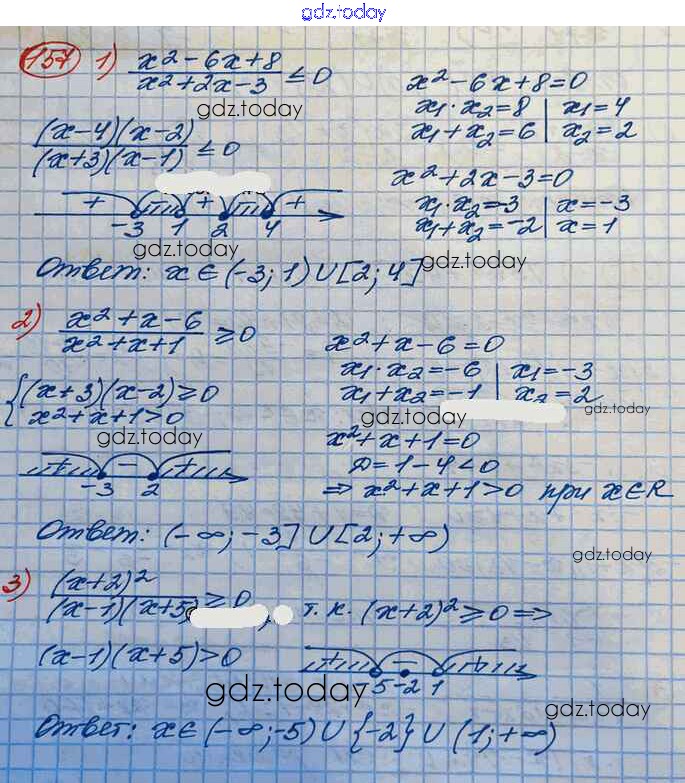 gdz.today
157 1) (x² - 6x + 8)/(x² + 2x - 3) ≤ 0
x² - 6x + 8 = 0
gdz.today
x₁ · x₂ = 8 | x₁ = 4
x₁ + x₂ = 6 | x₂ = 2
((x - 4)(x - 2))/((x + 3)(x - 1)) ≤ 0
x² + 2x - 3 = 0
x₁ · x₂ = -3 | x = -3
x₁ + x₂ = -2 | x = 1
+ + +
-3 1 2 4
gdz.today
gdz.today
Ответ: x ∈ (-3; 1) ∪ [2; 4]
2) (x² + x - 6)/(x² + x + 1) ≥ 0
x² + x - 6 = 0
x₁ · x₂ = -6 | x₁ = -3
x₁ + x₂ = -1 | x₂ = 2
{ (x + 3)(x - 2) ≥ 0
x² + x + 1 > 0
gdz.today
gdz.today
gdz.today
x² + x + 1 = 0
D = 1 - 4 < 0
⇒ x² + x + 1 > 0 при x ∈ R
+ - +
-3 2
Ответ: (-∞; -3] ∪ [2; +∞)
gdz.today
3) (x + 2)²/((x - 1)(x + 5) ≥ 0
т. к. (x + 2)² ≥ 0 ⇒
(x - 1)(x + 5) > 0
+ - +
-5 -2 1
gdz.today
gdz.today
Ответ: x ∈ (-∞; -5) ∪ {-2} ∪ (1; +∞)